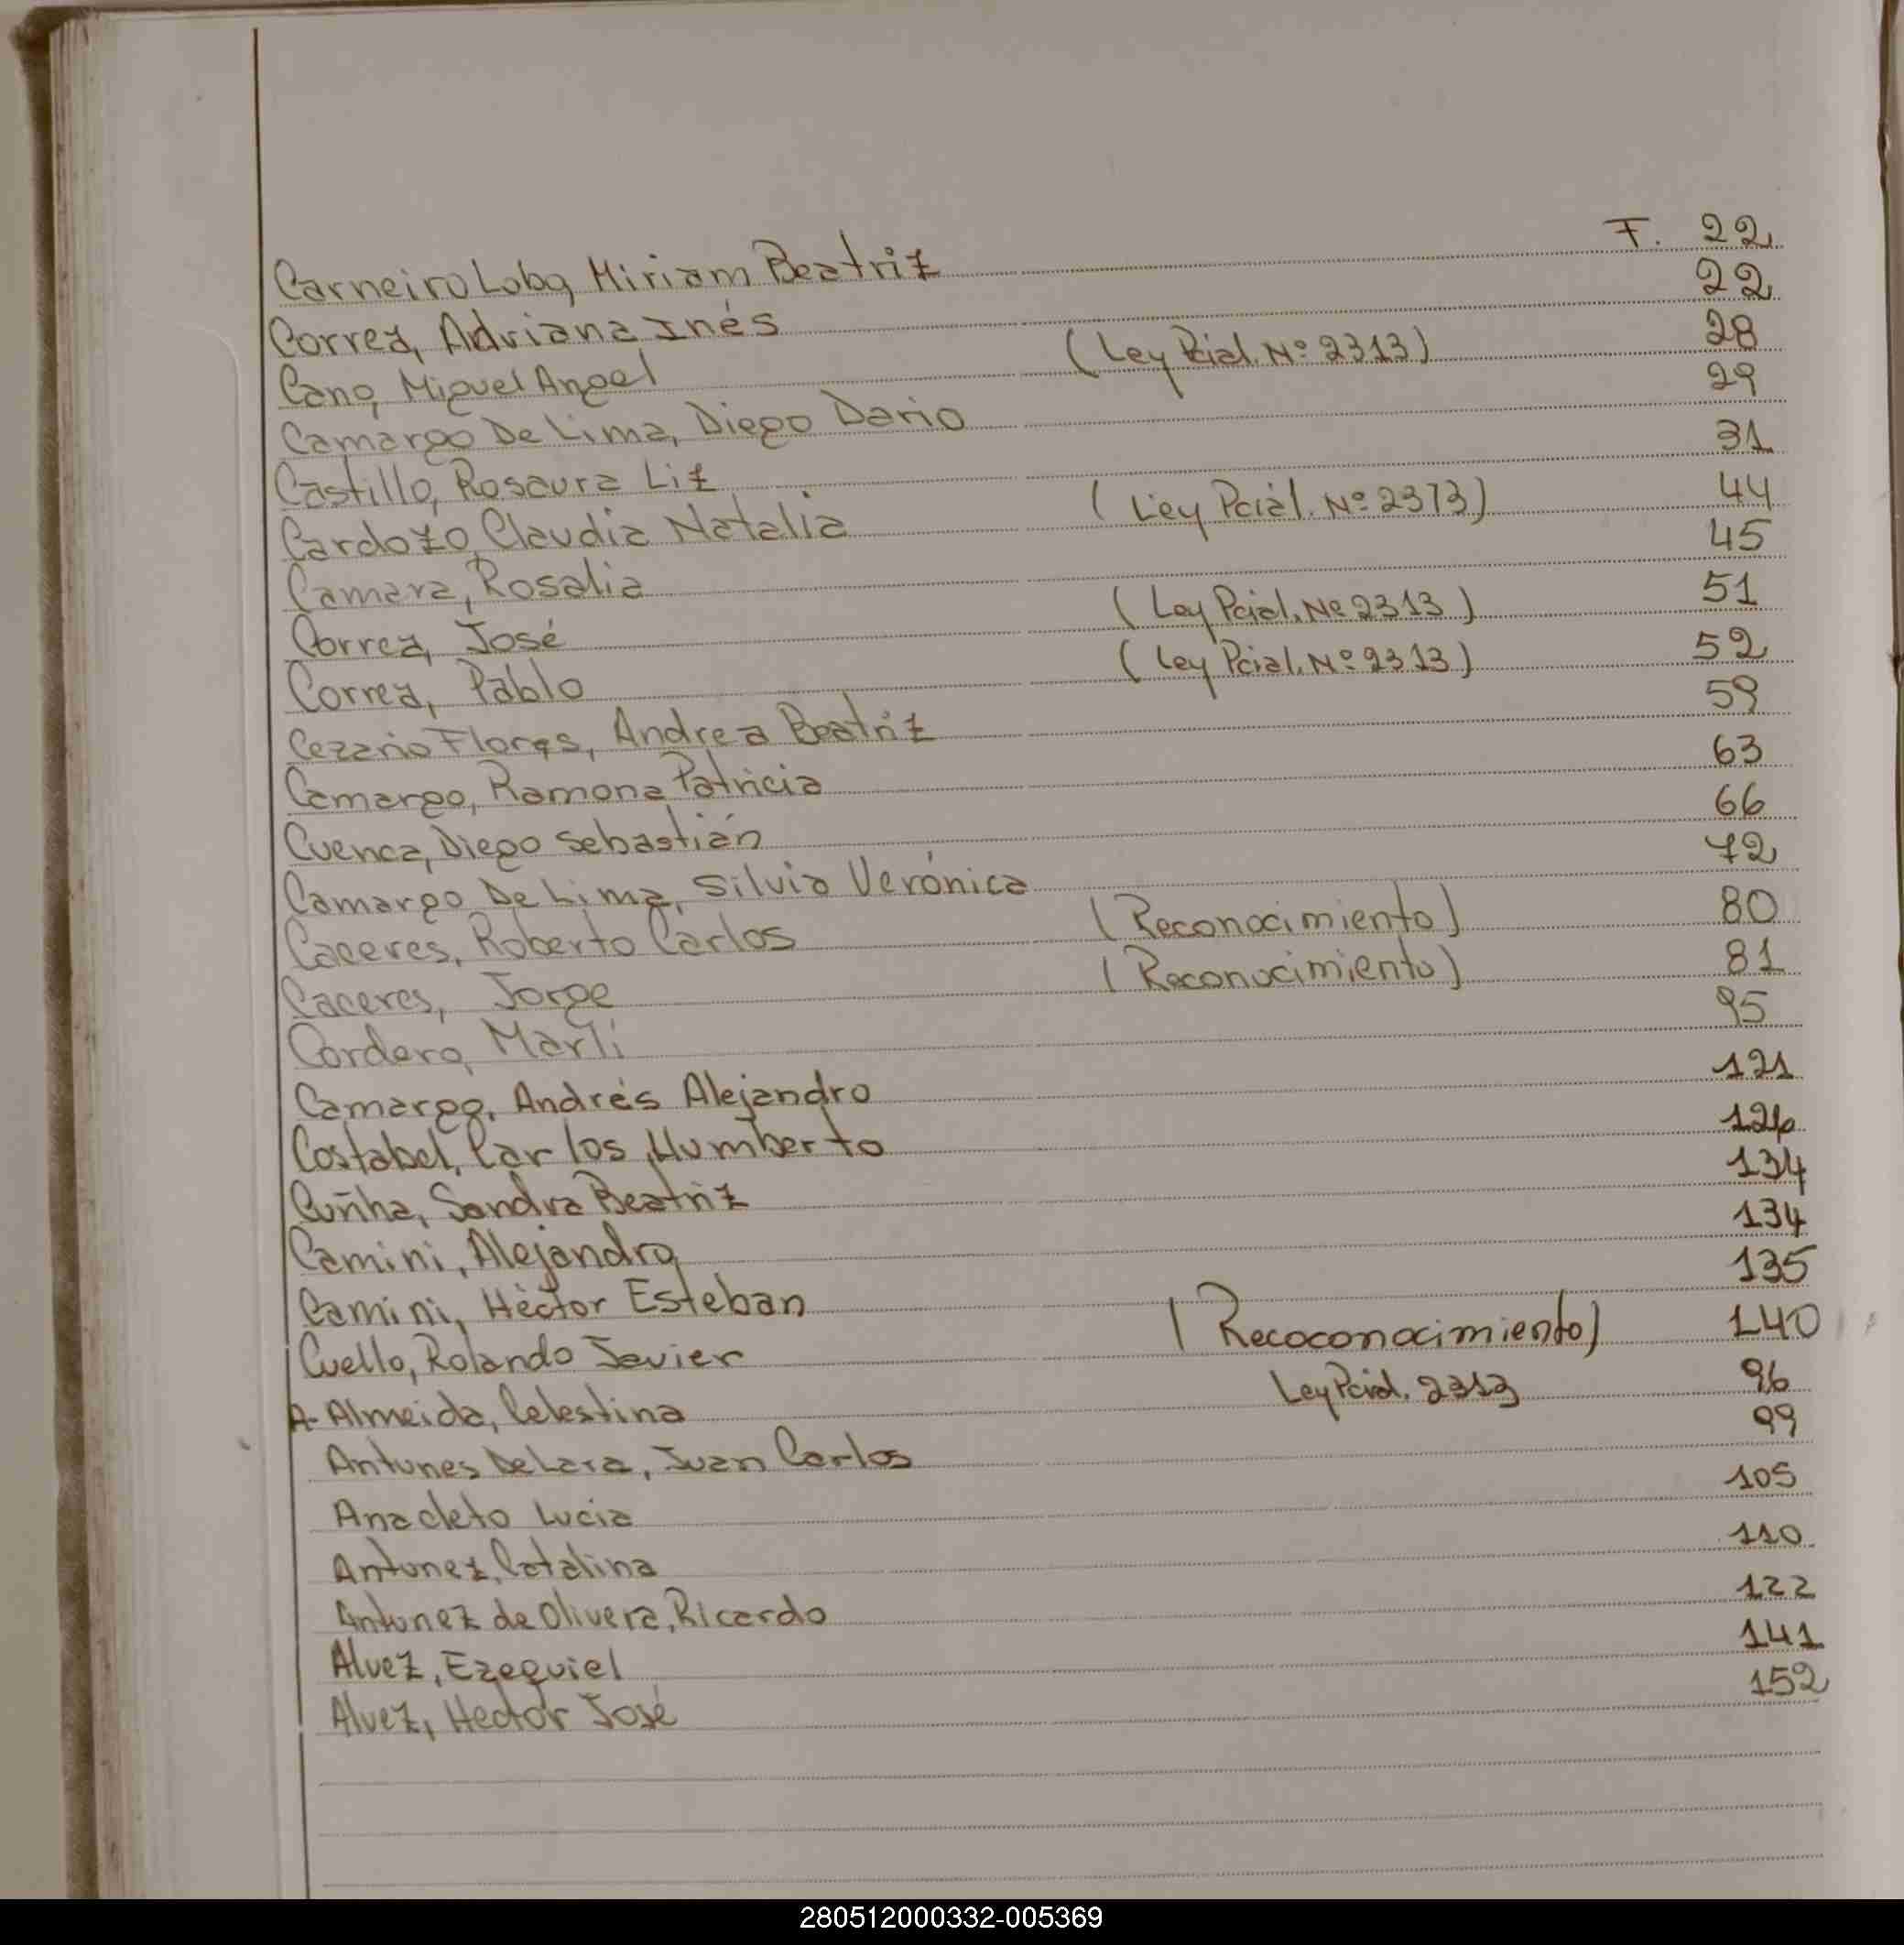 Carneiro Lobo, Miriam Beatriz F. 22
Correa, Adriana Inés 22
Cano, Miguel Angel (Ley Pcial. Nº 2313) 28
Camargo De Lima, Diego Dario 29
Castillo, Rosaura Liz 31
Cardozo, Claudia Natalia (Ley Pcial. Nº 2313) 44
Camara, Rosalia 45
Correa, José (Ley Pcial. Nº 2313) 51
Correa, Pablo (Ley Pcial. Nº 2313) 52
Cezario Flores, Andrea Beatriz 59
Camargo, Ramona Patricia 63
Cuenca, Diego Sebastián 66
Camargo De Lima, Silvia Verónica 72
Caceres, Roberto Carlos (Reconocimiento) 80
Caceres, Jorge (Reconocimiento) 81
Cordero, Marli 95
Camargo, Andrés Alejandro 121
Costabel, Carlos Humberto
Cuñha, Sandra Beatriz 134
Camini, Alejandro 134
Camini, Héctor Esteban 135
Cuello, Rolando Javier (Recoconocimiento) 140
A- Almeida, Celestina Ley Pcial. 2313 96
Antunes De Lara, Juan Carlos 99
Anacleto Lucia 105
Antunez, Catalina 110
Antunez de Olivera, Ricardo 122
Alvez, Ezequiel 141
Alvez, Hector José 152
280512000332-005369